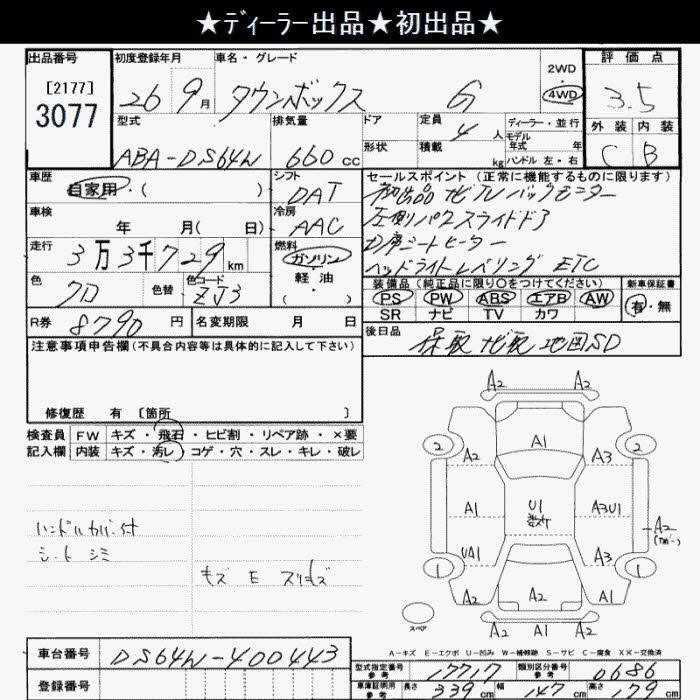 ★ディーラー出品★初出品★
出品番号 初度登録年月 車名・グレード 2WD・4WD 評価点
[2177]
3077
26 9月 タウンボックス G 3.5
型式 排気量 ドア 定員 4人 ディーラー・並行 外装 内装
モデル年式 年
ABA-DS64W 660cc 形状 積載 kg ハンドル 左・右 C B
車歴 シフト セールスポイント (正常に機能するものに限ります)
自家用・( ) DAT 初出品 ナビ TV バックモニター
車検 冷房 左側パワースライドドア
年 月( 日) AAC
走行 燃料 シートヒーター
3万3千729km ガソリン ヘッドライトレベリング ETC
色 色替 色コード ・軽油 装備品 (純正品に限り○をつけてください) 新車保証書
クロ ZJ3 ・( ) PS PW ABS エアB AW 有・無
SR ナビ TV カワ
R券 8790円 名変期限 月 日 後日品 保取 ナビ取 地図SD
注意事項申告欄(不具合内容等は具体的に記入して下さい)
修復歴 有 [箇所 ]
検査員 FW キズ・飛石・ヒビ割・リペア跡・×要
記入欄 内装 キズ・汚レ・コゲ・穴・スレ・キレ・破レ
ハンドルカバー付
シートシミ
キズ E スリキズ
A2 A2
2 A1 2
A2 A3
A1 U1 A3U1 A2
UA1 A3
1 1
A2 A2 A1
スペア A2 A1 A2
A-キズ E-エクボ U-凹み W-補修跡 S-サビ C-腐食 XX-交換済
車台番号 DS64W-400443
型式指定番号 参考 17717 類別区分番号 参考 0686
登録番号
車庫証明用 参考 長さ 339 幅 147 高さ 179 cm